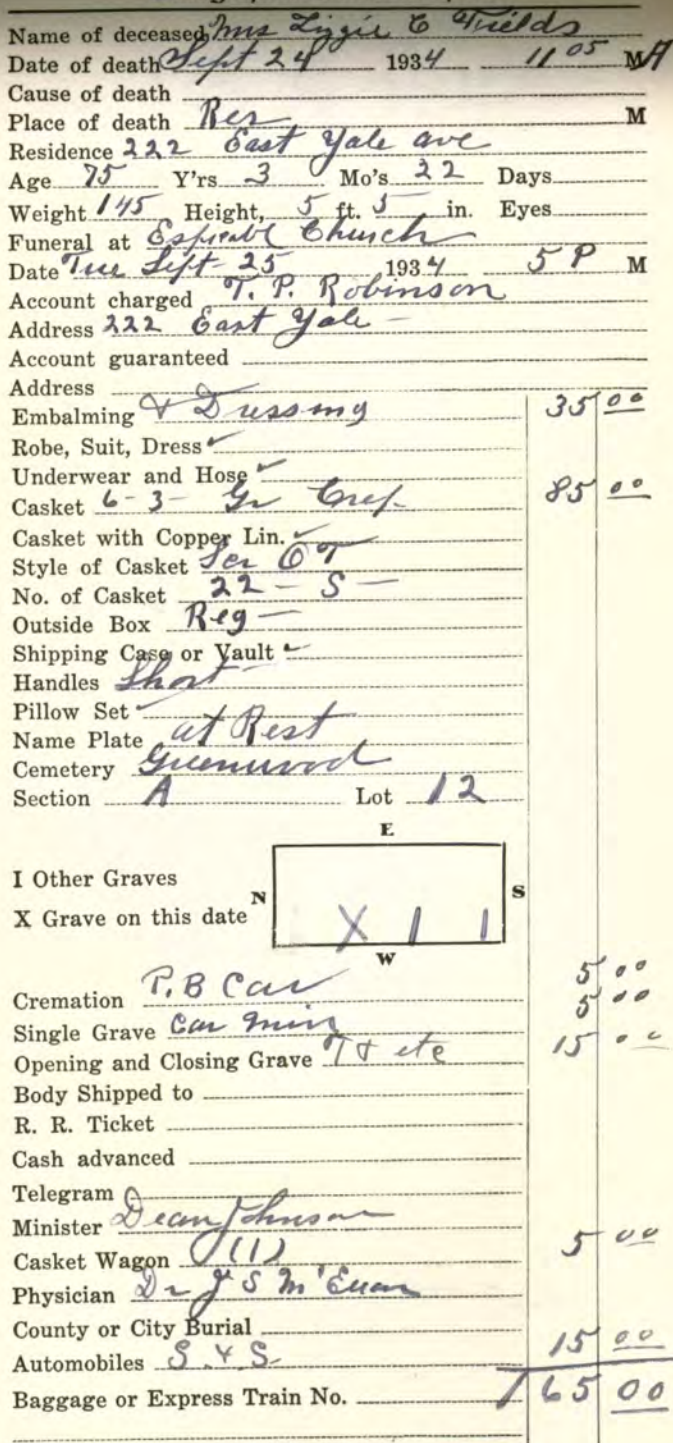 Name of deceased Mrs Lizzie E Fields
Date of death Sept 24 1934 11 05 M A
Cause of death
Place of death Res M
Residence 222 East Yale ave
Age 75 Y'rs 3 Mo's 22 Days
Weight 145 Height, 5 ft. 5 in. Eyes
Funeral at Church
Date Tue Sept 25 1934 5 P M
Account charged T. P. Robinson
Address 222 East Yale
Account guaranteed
Address
Embalming & Dressing 35 00
Robe, Suit, Dress
Underwear and Hose
Casket 6-3- Gr Crep 85 00
Casket with Copper Lin.
Style of Casket
No. of Casket 22 - S -
Outside Box Reg -
Shipping Case or Vault
Handles Short
Pillow Set
Name Plate at Rest
Cemetery Greenwood
Section A Lot 12
E
I Other Graves
N S
X Grave on this date X I I
W
5 00
Cremation P.B Car 5 00
Single Grave Car
Opening and Closing Grave T & etc 15 00
Body Shipped to
R. R. Ticket
Cash advanced
Telegram
Minister Dean Johnson
Casket Wagon (1) 5 00
Physician Dr J S McEwan
County or City Burial
Automobiles S & S 15 00
Baggage or Express Train No. 165 00